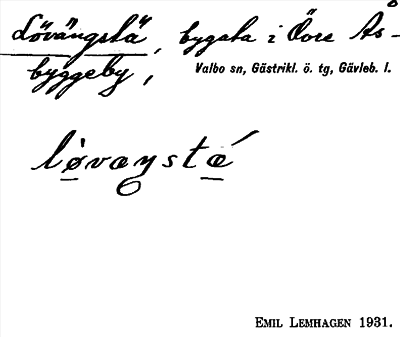 Lövängstä, bygata i Övre Ås-
byggeby,
Valbo sn, Gästrikl. ö. tg, Gävleb. l.
lø̀væŋstǽ
EMIL LEMHAGEN 1931.